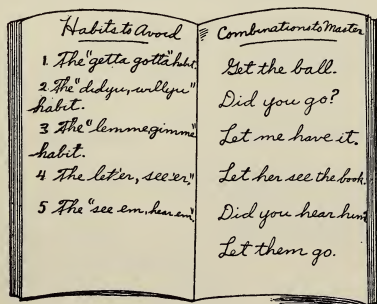 Habits to Avoid
1. The "getta gotta" habit.
2. The "didyu, willyu"
habit.
3 The "lemme gimme"
habit.
4 The let'er, see'er."
5 The "see em, hear em."
Combinations to Master
Get the ball.
Did you go?
Let me have it.
Let her see the book.
Did you hear him?
Let them go.